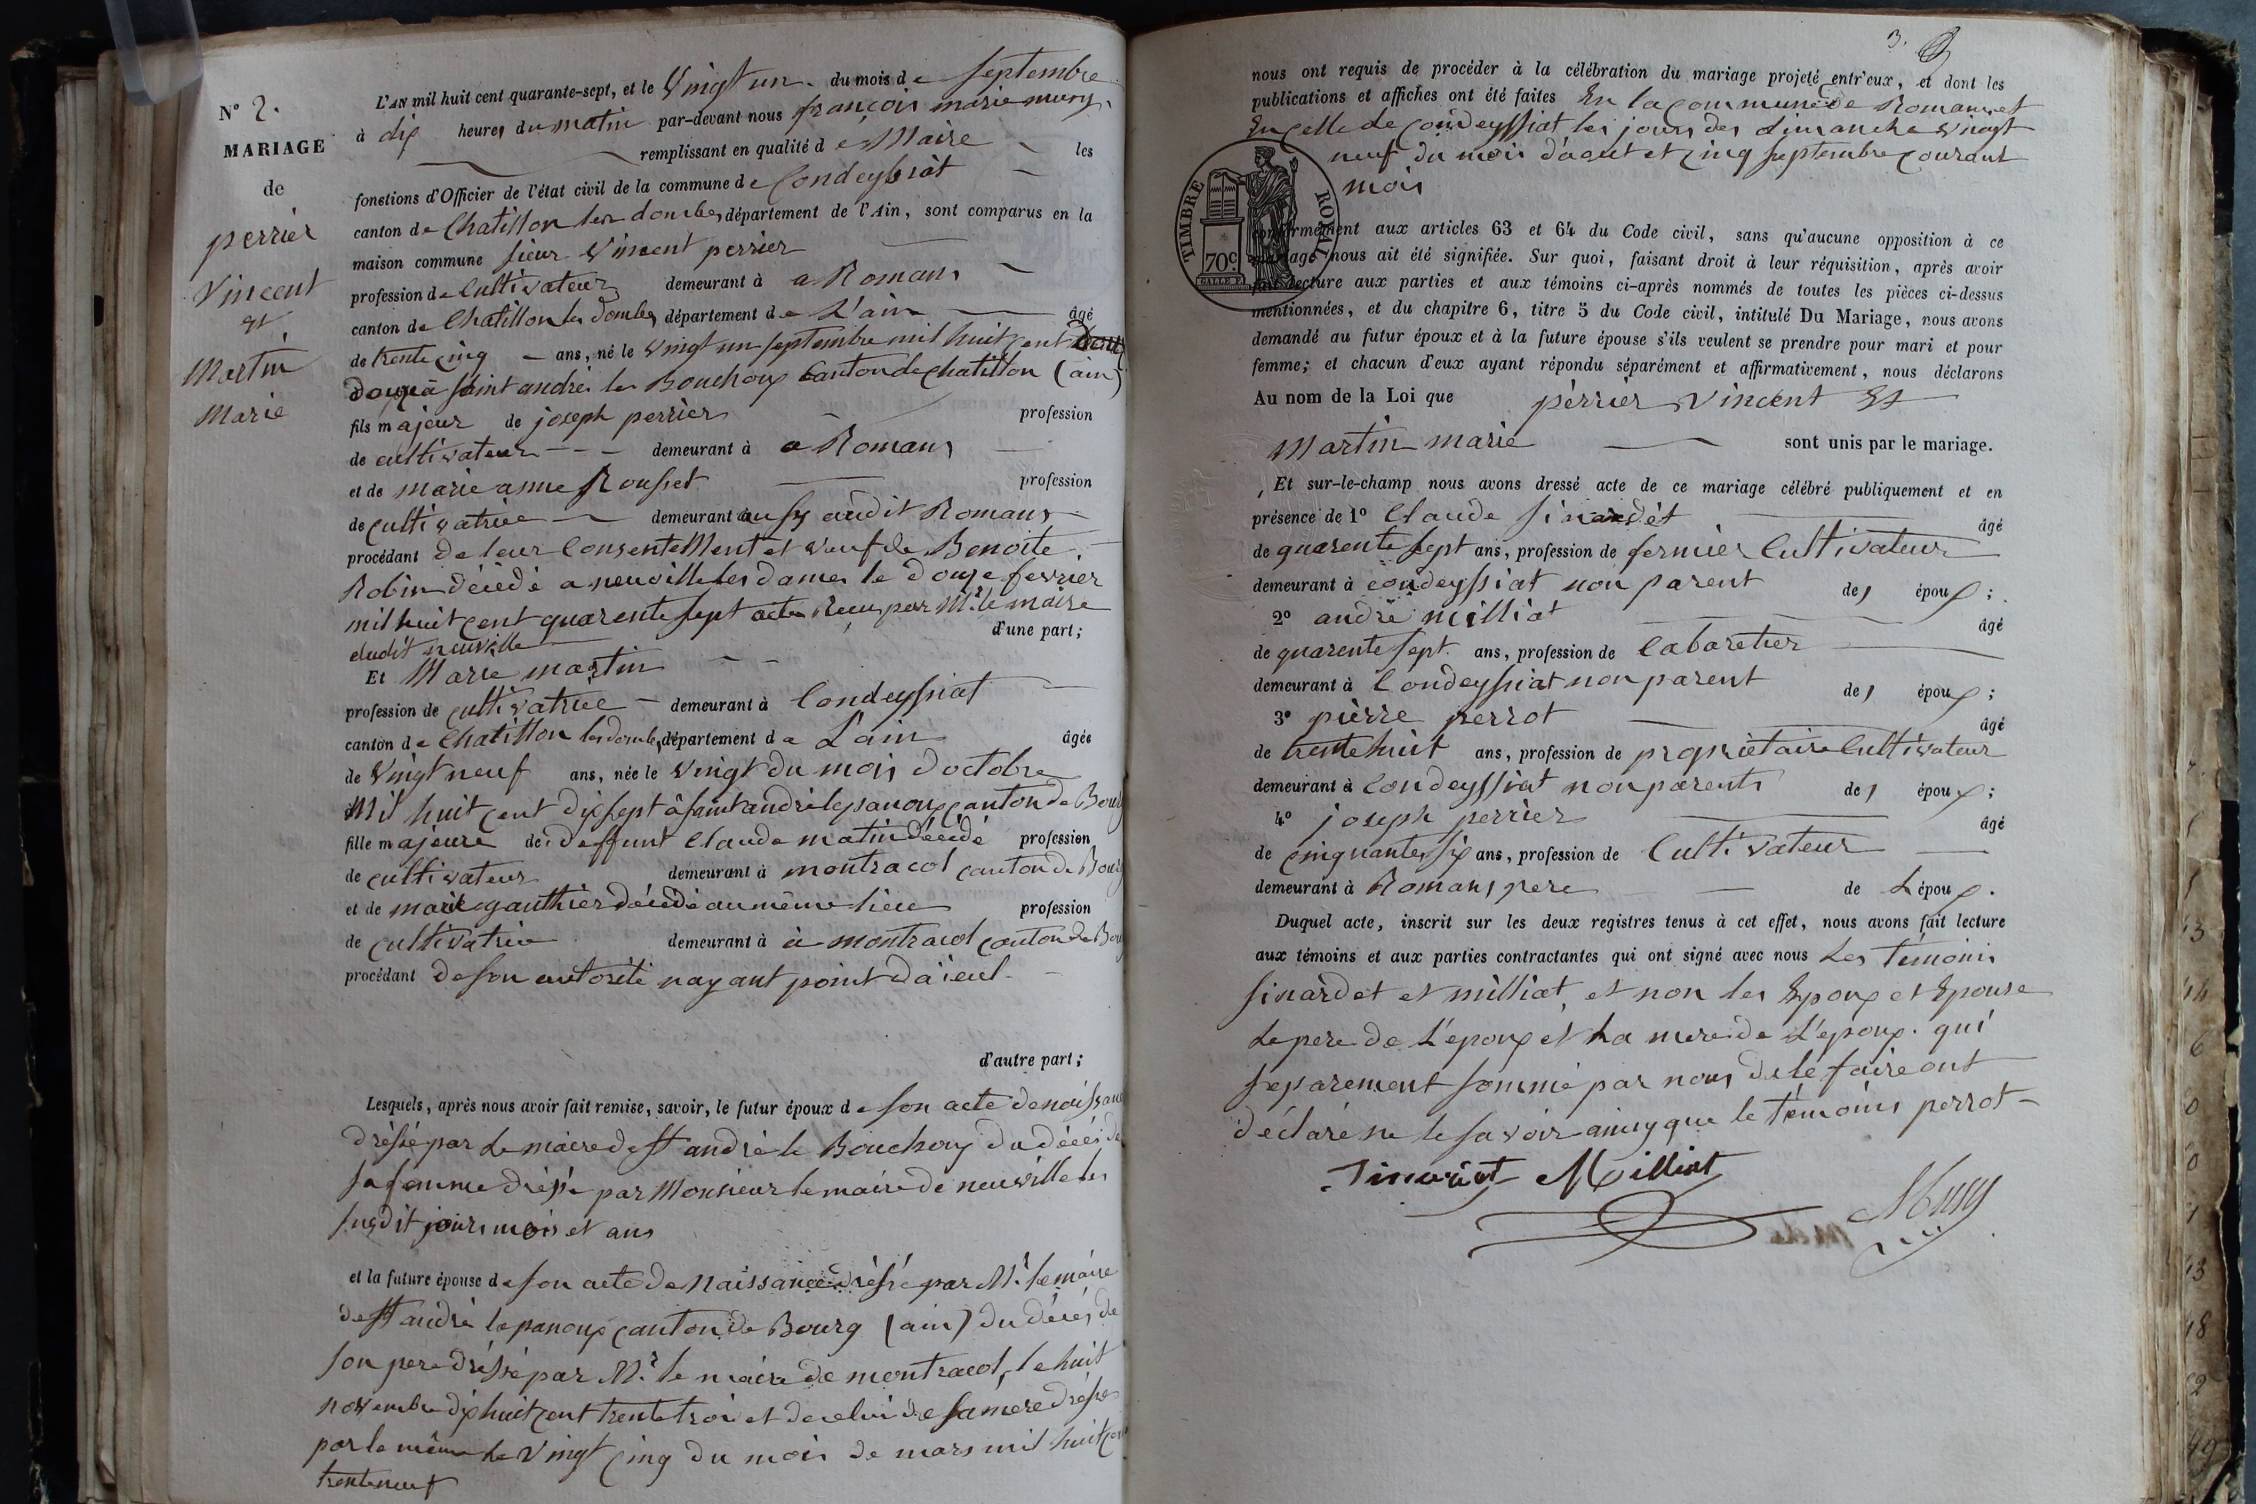 N° 2.
MARIAGE
de
perrier
Vincent
et
Martin
Marie
L'AN mil huit cent quarante-sept, et le Vingt un du mois de Septembre
à dix heures du matin par-devant nous françois marie mury
remplissant en qualité de Maire les
fonctions d'Officier de l'état civil de la commune de Condeyssiat
canton de Chatillon les dombes département de l'Ain, sont comparus en la
maison commune sieur Vincent perrier
profession de Cultivateur demeurant à a Romans
canton de Chatillon les Dombes département de L'ain âgé
de trente cinq ans, né le Vingt un septembre mil huit cent
douze à Saint andré le Bouchoux Canton de Chatillon (ain)
fils majeur de joseph perrier profession
de cultivateur demeurant à a Romans
et de marie anne Rousset profession
de cultivatrice demeurant aussy audit Romans
procédant de leur Consentement et veuf de Benoite
Robin décédé a neuville les dames le douze fevrier
mil huit cent quarente sept acte Reçu par Mr le maire
dudit neuville d'une part;
Et Marie martin
profession de cultivatrice demeurant à Condeyssiat
canton de Chatillon les dombes département de L'ain âgée
de Vingt neuf ans, née le Vingt du mois d'octobre
Mil huit cent dix sept à saint andré le panoux canton de Bourg
fille majeure de deffunt Claude matin décédé profession
de cultivateur demeurant à montracol canton de Bourg
et de marie gauthier décédé au même lieu profession
de cultivatrice demeurant à à montracol canton de Bourg
procédant de son autorité nayant point d'aïeul
d'autre part;
Lesquels, après nous avoir fait remise, savoir, le futur époux de son acte de naissance
dréssé par Le maire de St andré le Bouchoux du décés de
sa femme dréssé par Monsieur le maire de neuville les
susdit jours mois et ans
et la future épouse de son acte de Naissance dréssé par Mr le maire
de St andré le panoux canton de Bourg (ain) du décés de
son pere dréssé par Mr le maire de montracol, le huit
novembre dix huit cent trente trois et de celui de sa mere dréssé
par le même le Vingt cinq du mois de mars mil huit cent
trente neuf
3.
nous ont requis de procéder à la célébration du mariage projeté entr'eux, et dont les
publications et affiches ont été faites En la commune de Romans et
En celle de Condeyssiat les jours des dimanche vingt
neuf du mois d'aout et cinq septembre courant
mois
TIMBRE ROYAL
70c.
conformément aux articles 63 et 64 du Code civil, sans qu'aucune opposition à ce
mariage nous ait été signifiée. Sur quoi, faisant droit à leur réquisition, après avoir
fait lecture aux parties et aux témoins ci-après nommés de toutes les pièces ci-dessus
mentionnées, et du chapitre 6, titre 5 du Code civil, intitulé Du Mariage, nous avons
demandé au futur époux et à la future épouse s'ils veulent se prendre pour mari et pour
femme; et chacun d'eux ayant répondu séparément et affirmativement, nous déclarons
Au nom de la Loi que perrier Vincent Et
Martin marie sont unis par le mariage.
Et sur-le-champ nous avons dressé acte de ce mariage célébré publiquement et en
présence de 1° Claude Sinardét âgé
de quarente sept ans, profession de fermier Cultivateur
demeurant à condeyssiat non parent des époux;
2° andré milliat âgé
de quarente sept ans, profession de Cabaretier
demeurant à Condeyssiat non parent des époux;
3° pierre perrot âgé
de trente huit ans, profession de propriétaire Cultivateur
demeurant à Condeyssiat non parents des époux;
4° joseph perrier âgé
de cinquante six ans, profession de Cultivateur
demeurant à Romans pere de L époux.
Duquel acte, inscrit sur les deux registres tenus à cet effet, nous avons fait lecture
aux témoins et aux parties contractantes qui ont signé avec nous Les Témoins
sinardet et milliat, et non les Epoux et Epouse
Le pere de L'epoux et La mere de L'époux. qui
separement sommé par nous de le faire ont
déclaré ne le savoir ainsy que le témoins perrot
Sinardet Milliat
Mury